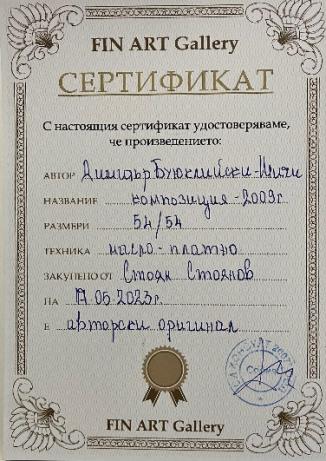 FIN ART Gallery
СЕРТИФИКАТ
С настоящия сертификат удостоверяваме,
че произведението:
АВТОР Димитър Буюклийски-Мичи
НАЗВАНИЕ композиция - 2009г
РАЗМЕРИ 54/54
ТЕХНИКА масло - платно
ЗАКУПЕНО ОТ Стоян Стоянов
НА 17.05.2023г.
Е авторски оригинал
FIN ART Gallery